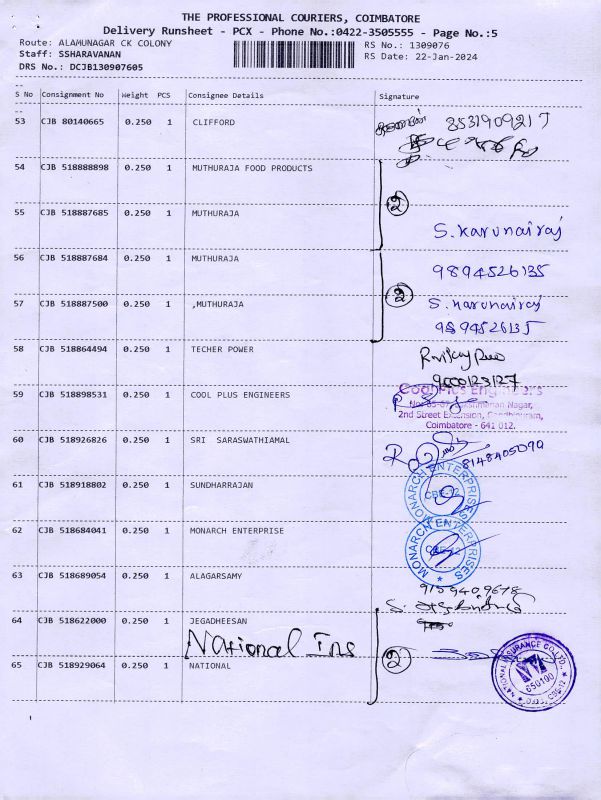 THE PROFESSIONAL COURIERS, COIMBATORE
Delivery Runsheet - PCX - Phone No.:0422-3505555 - Page No.:5
Route: ALAMUNAGAR CK COLONY RS No.: 1309076
Staff: SSHARAVANAN RS Date: 22-Jan-2024
DRS No.: DCJB130907605
S No Consignment No Weight PCS Consignee Details Signature
53 CJB 80140665 0.250 1 CLIFFORD
54 CJB 518888898 0.250 1 MUTHURAJA FOOD PRODUCTS
2
55 CJB 518887685 0.250 1 MUTHURAJA
S. Karunairaj
56 CJB 518887684 0.250 1 MUTHURAJA
9894526135
2
57 CJB 518887500 0.250 1 ,MUTHURAJA S. Karunairaj
9894526135
58 CJB 518864494 0.250 1 TECHER POWER
9000123127
59 CJB 518898531 0.250 1 COOL PLUS ENGINEERS
2nd Street Extension, Gandhipuram,
Coimbatore - 641 012.
60 CJB 518926826 0.250 1 SRI SARASWATHIAMAL
61 CJB 518918802 0.250 1 SUNDHARRAJAN
MONARCH ENTERPRISES
CBE-12
62 CJB 518684041 0.250 1 MONARCH ENTERPRISE
MONARCH ENTERPRISES
CBE-12
63 CJB 518689054 0.250 1 ALAGARSAMY
9159409678
64 CJB 518622000 0.250 1 JEGADHEESAN
National Ins
2
65 CJB 518929064 0.250 1 NATIONAL
NATIONAL INSURANCE CO. LTD.
650100